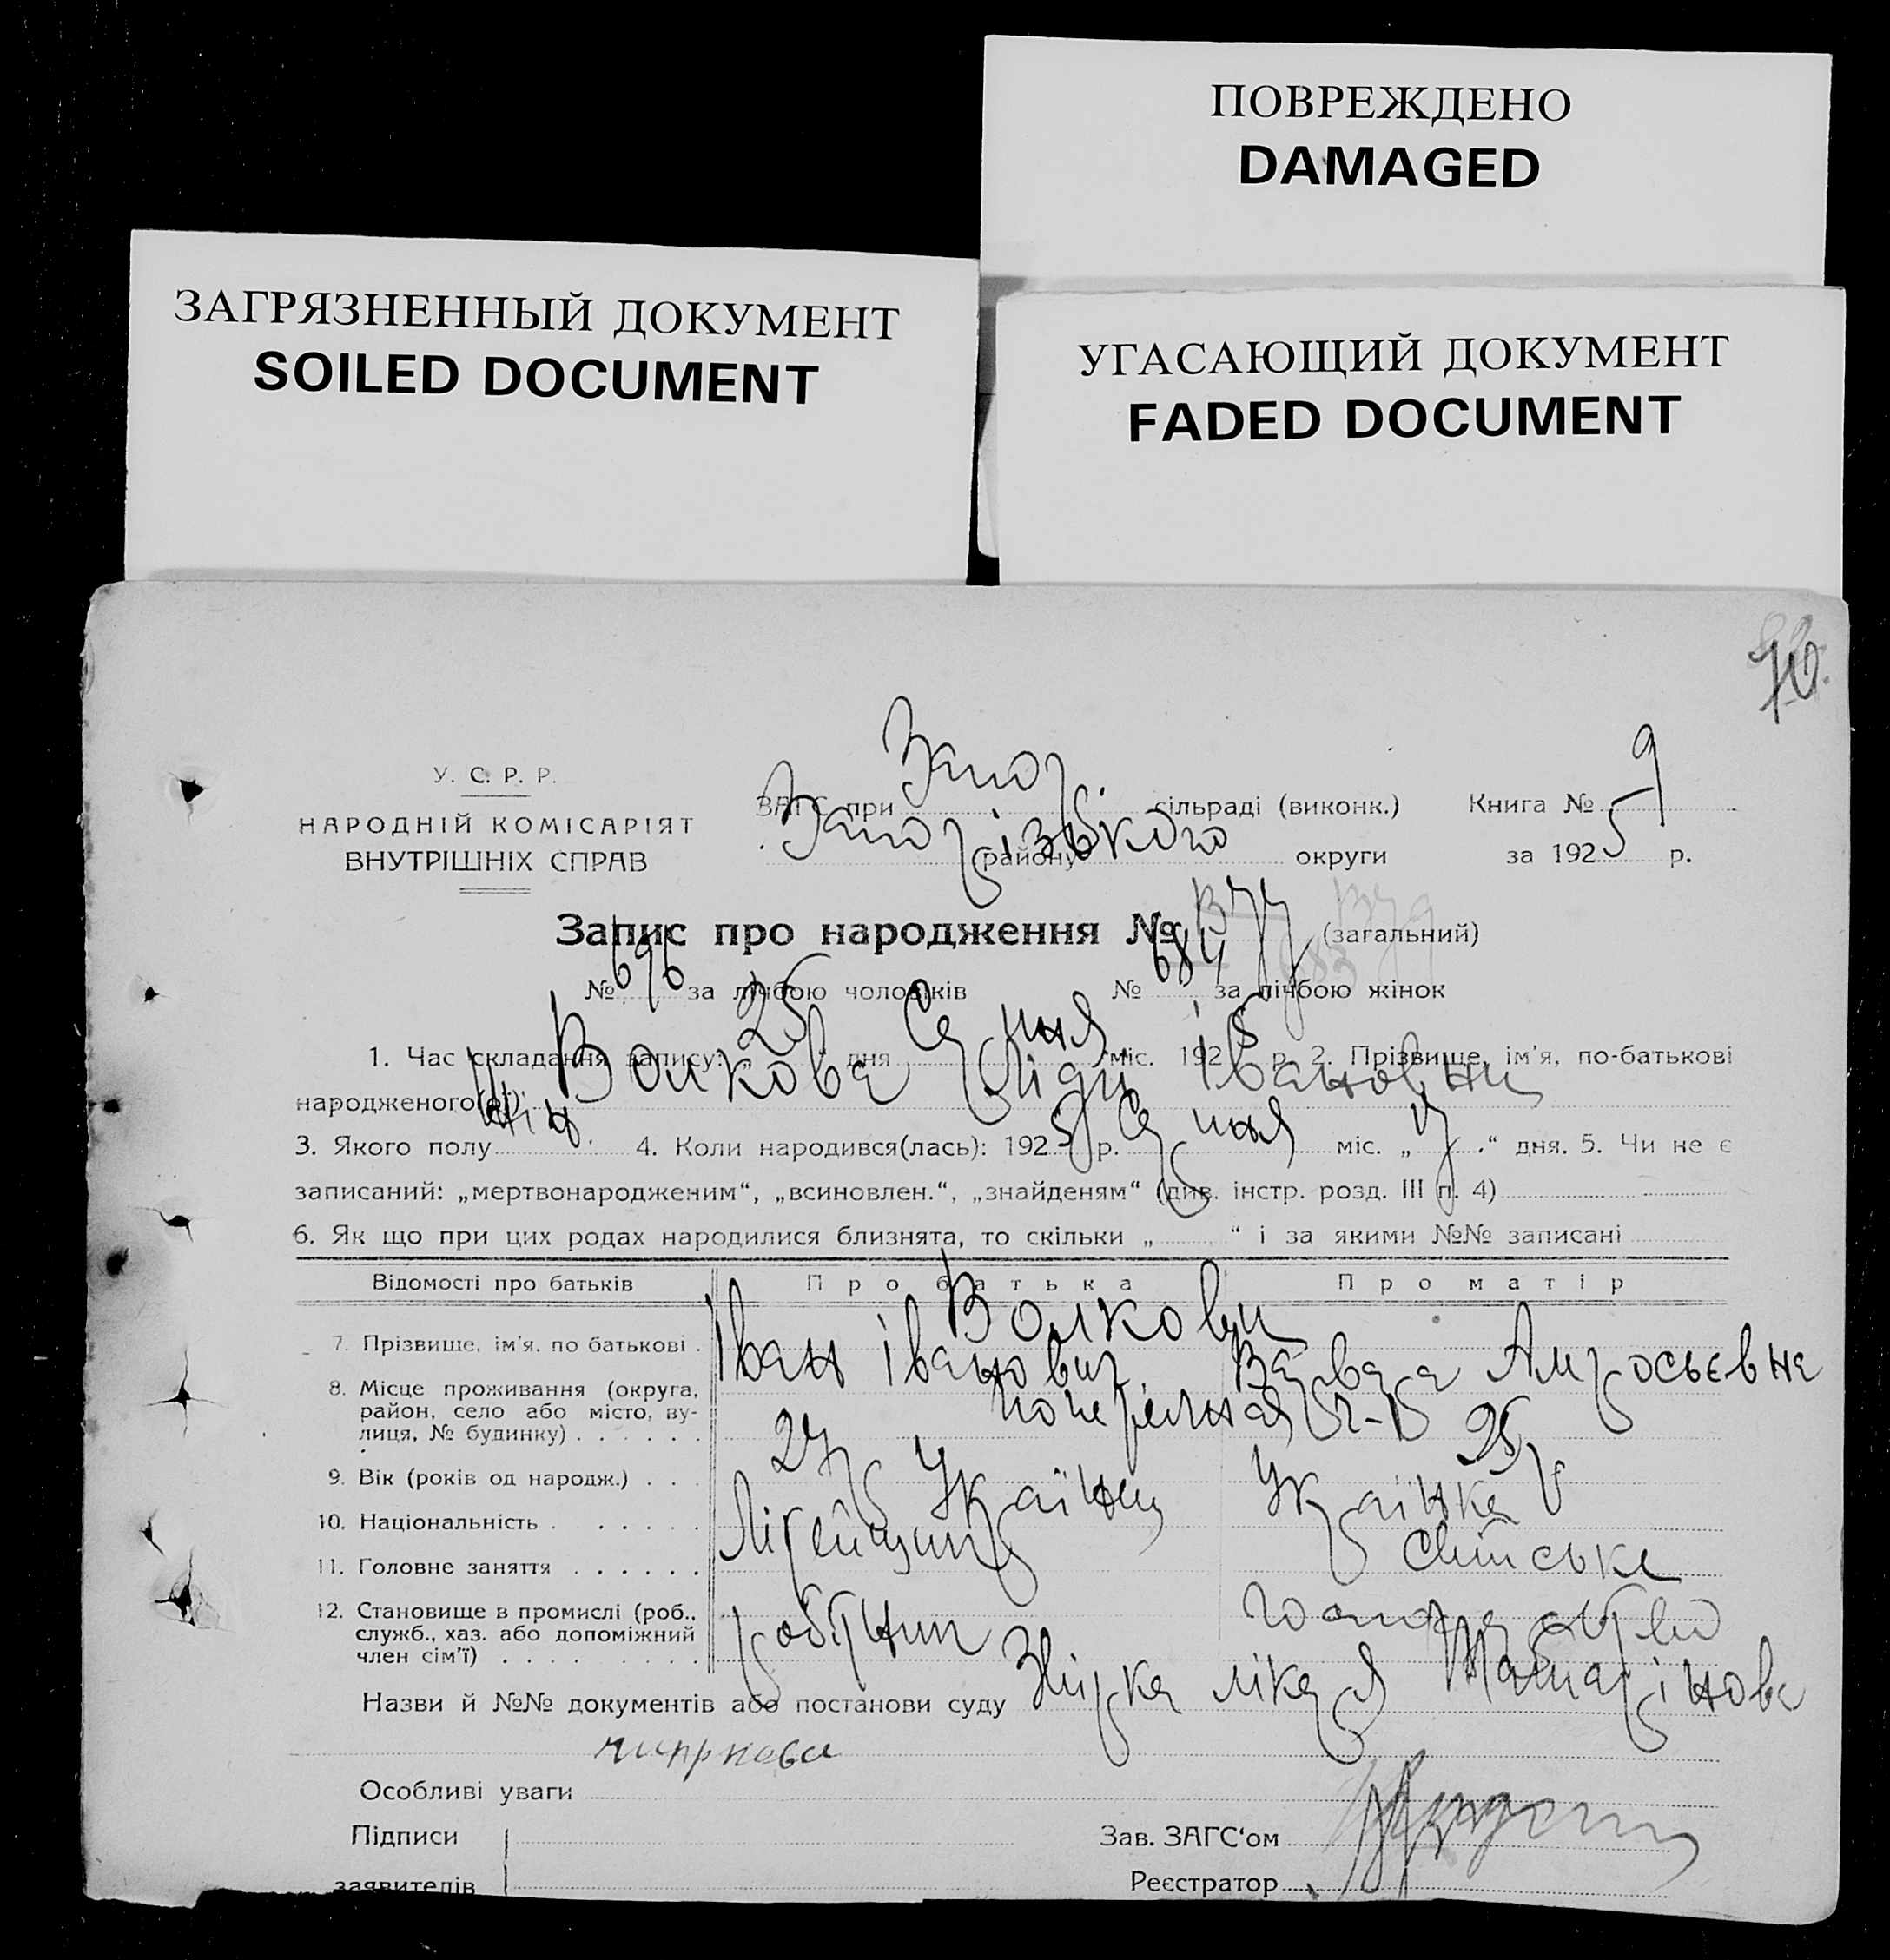 ПОВРЕЖДЕНО
DAMAGED
ЗАГРЯЗНЕННЫЙ ДОКУМЕНТ
SOILED DOCUMENT
УГАСАЮЩИЙ ДОКУМЕНТ
FADED DOCUMENT
У. С. Р. Р.
НАРОДНІЙ КОМІСАРІЯТ
ВНУТРІШНІХ СПРАВ
ЗАГС при Запор. сільраді (виконк.) Книга № 9
Запорізького району округи за 1925 р.
Запис про народження № (загальний)
№ 696 за лічбою чоловіків № 684 за лічбою жінок
1. Час складання запису: 25 дня Серпня міс. 1925 р. 2. Прізвище, ім'я, по-батькові
народженого(ої) Волкова Лідія Івановна
3. Якого полу жін. 4. Коли народився(лась): 1925 р. Серпня міс. „ “ дня. 5. Чи не є
записаний: „мертвонародженим“, „всиновлен.“, „знайденям“ (див. інстр. розд. III п. 4)
6. Як що при цих родах народилися близнята, то скільки „ “ і за якими №№ записані
Відомості про батьків Про батька Про матір
Волкови
7. Прізвище, ім'я, по батькові . Іван Іванович Варвара Амросьєвна
8. Місце проживання (округа,
район, село або місто, ву-
лиця, № будинку) . . . . . .
9. Вік (років од народж.) . . . 27 р 25 р
10. Національність . . . . . . Українець Українка
11. Головне заняття . . . . . . Літейщик
12. Становище в промислі (роб.,
служб., хаз. або допоміжний
член сім'ї) . . . . . . . . робітник
Назви й №№ документів або постанови суду лікаря
Особливі уваги
Підписи Зав. ЗАГС‘ом
заявителів Реєстратор